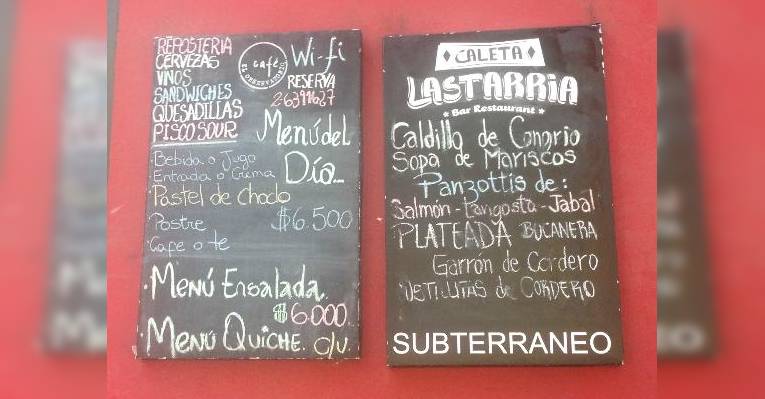 REPOSTERIA
CERVEZAS
VINOS
SANDWICHES
QUESADILLAS
PISCO SOUR
café
EL OBSERVATORIO
Wi-fi
RESERVA
Menú del
Día...
Bebida o Jugo
Entrada o Crema
Pastel de choclo
Postre
$6.500
Cafe o te
Menú Ensalada
$6.000
Menú QUICHE. c/u.
CALETA
LASTARRIA
Bar Restaurant
Caldillo de Congrio
Sopa de Mariscos
Panzottis de:
Salmón - Langosta - Jabalí
PLATEADA BUCANERA
Garrón de Cordero
de CORDERO
SUBTERRANEO